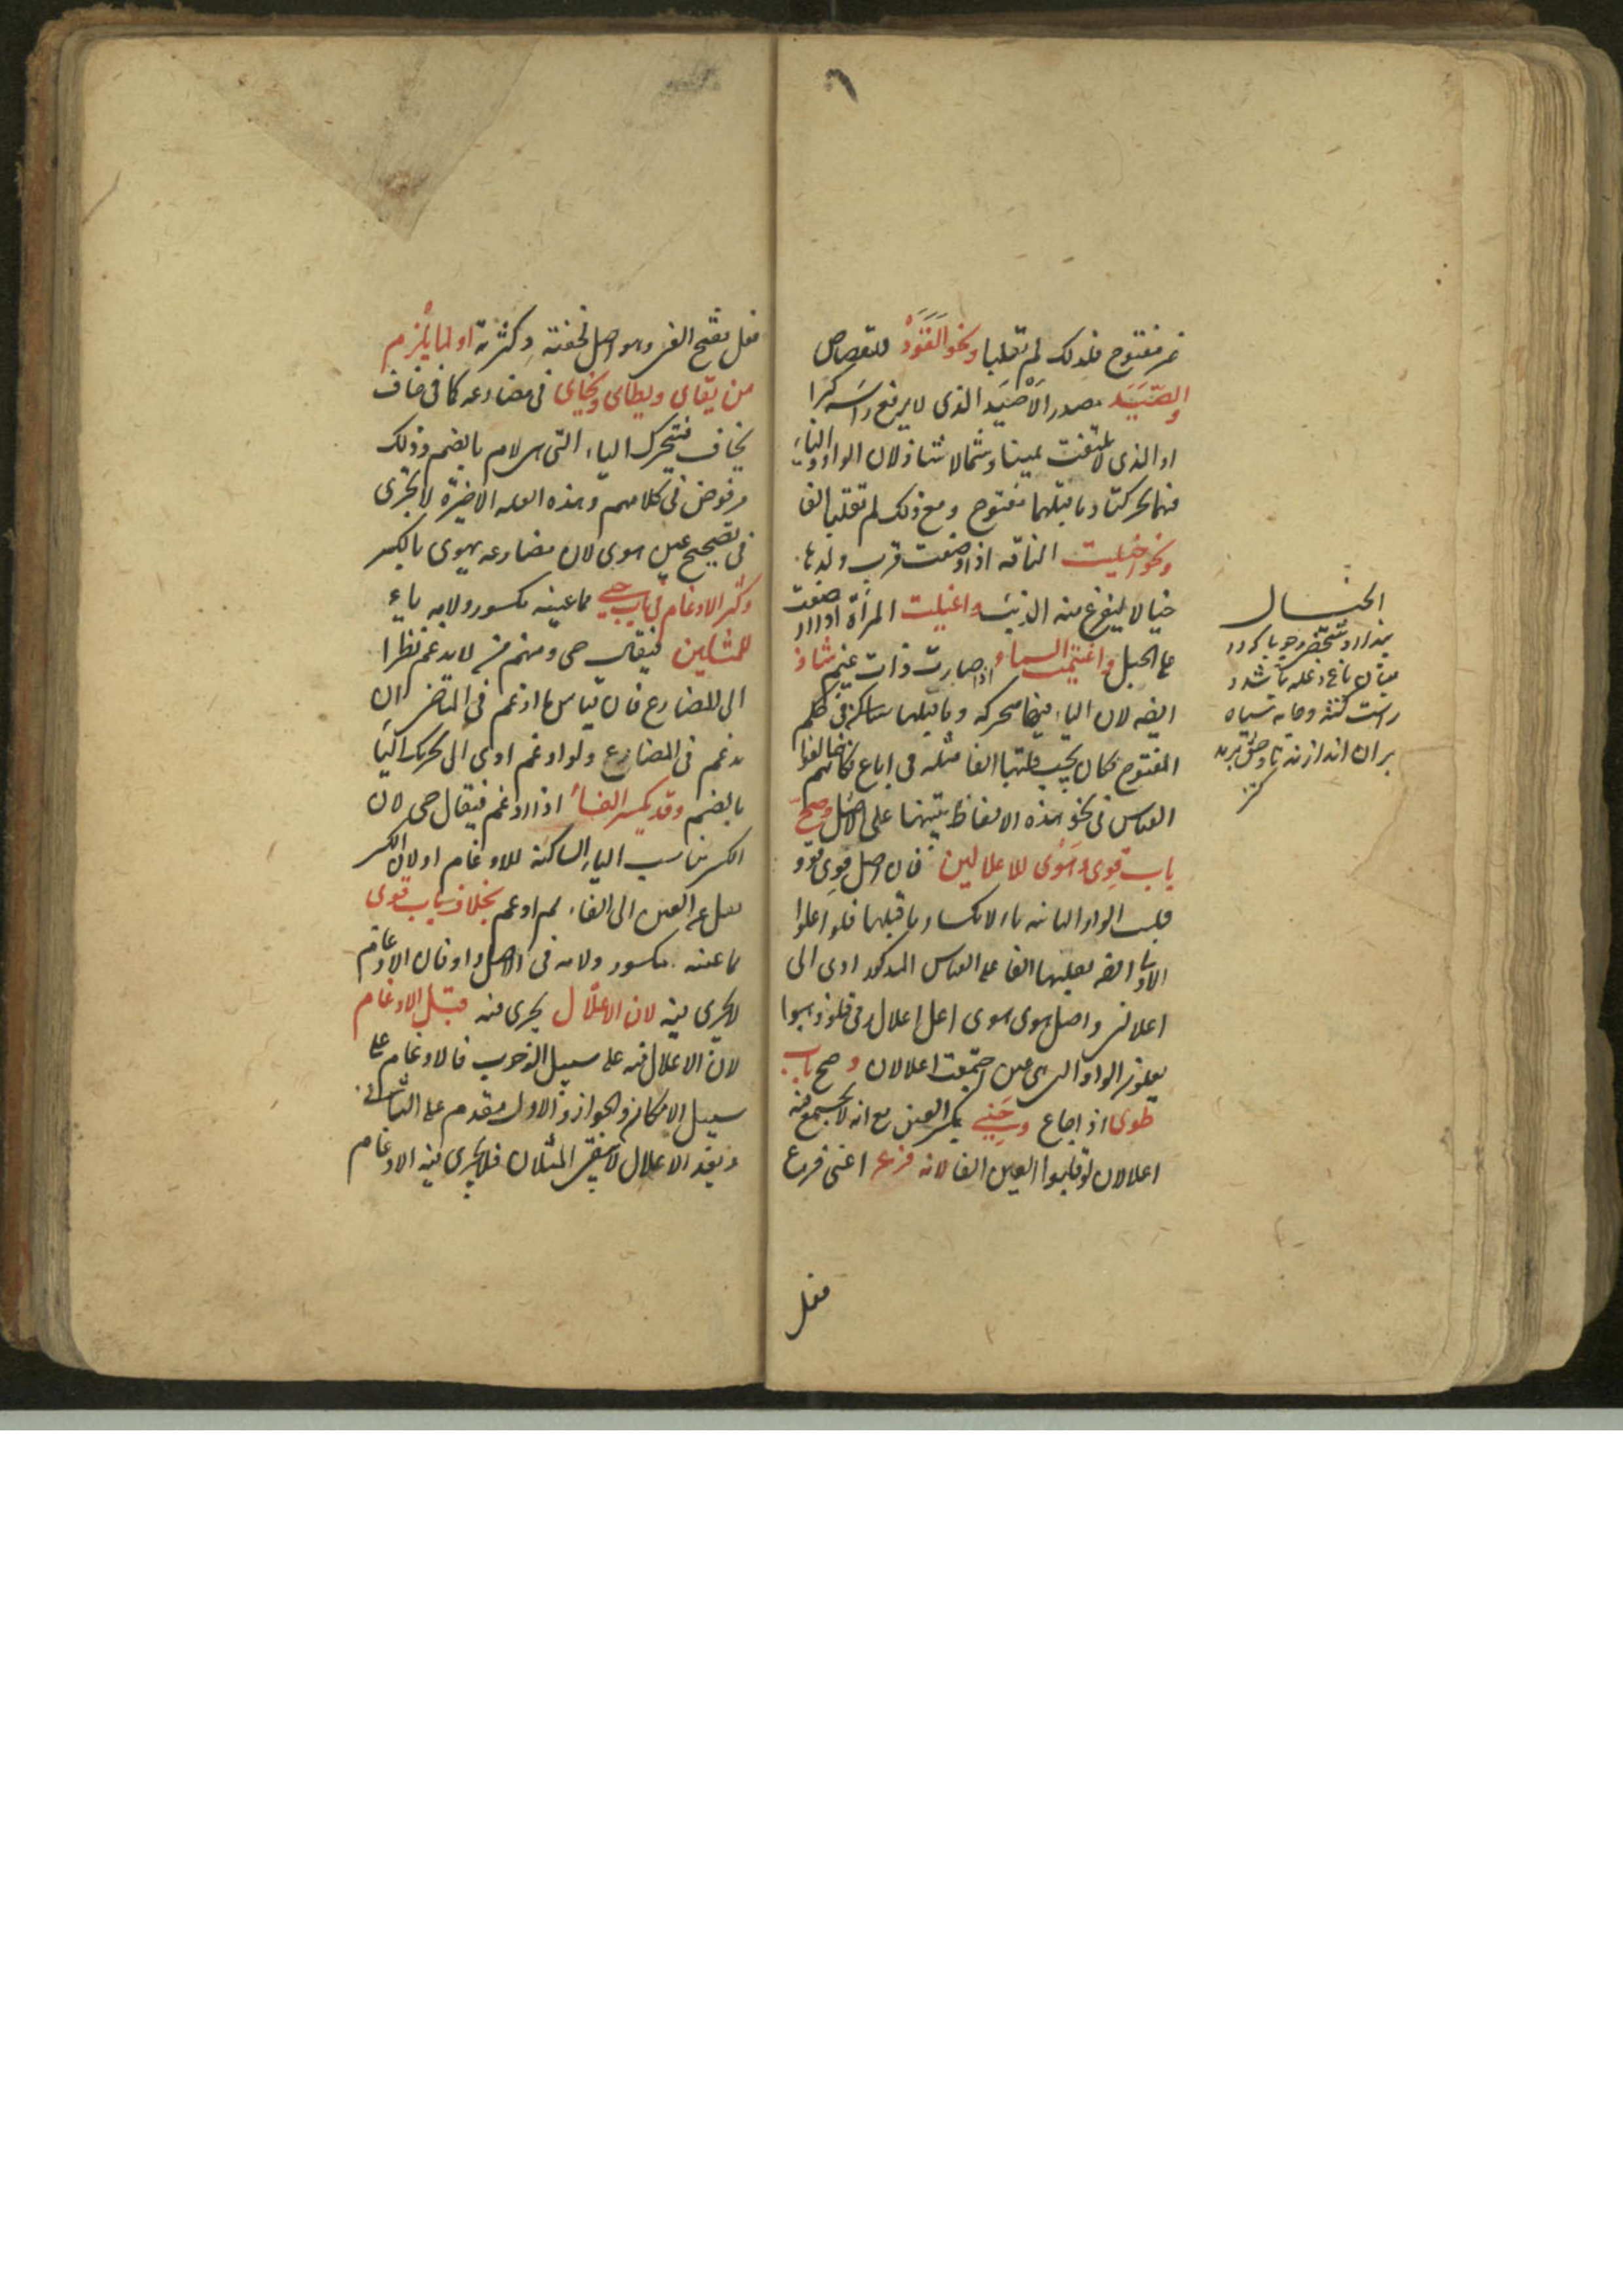 غير مفتوح فلذلك لم تقلبا ونحو القَوَد للقصاص
والصَّيَد مصدر الأصْيَد الذى لا يرفع راسه كبرا
او الذى لا يلتفت يمينا وشمالا شاذ لان الواو والياء
فيهما تحركتا وما قبلهما مفتوح ومع ذلك لم تقلبا الفا
ونحو اخيلت الناقه اذا وضعت قرب ولدها
خيالا ليفزع منه الذئب واغيلت المرأة اذا ارضعت
على الحبل واغيمت السماء اذا صارت ذات غيم شاذ
ايضه لان الياء فيها متحركه وما قبلها ساكن فى حكم
المفتوح فكان يجب قلبها الفا مثله فى اباع فكانهم خالفوا
القياس فى نحو هذه الالفاظ تنبيها على الاصل وصحّ
باب قوِى وهَوَى للاعلالين فان اصل قوى قوو
قلبت الواو الثانيه ياء لانكسار ما قبلها فلو اعلوا
الاولى ايضه بقلبها الفا على القياس المذكور ادى الى
اعلالين واصل هوى هوى اعل اعلال رمى فلو ذهبوا
يعلون الواو التى هى عين اجتمعت اعلالان وصح باب
طوى اذا جاع وحَيِىَ بكسر العين مع انه لا يجتمع فيه
اعلالان لو قلبوا العين الفا لانه فرع اعنى فرع
فعل
الخيال
فعل بفتح العين وهو اصل لخفته وكثرته او لما يلزم
من يقاى ويطاى ويحاى فى مضارعه كما فى خاف
يخاف فتتحرك الياء التى هى لام بالضم وذلك
مرفوض فى كلامهم وهذه العله الاخيرة لا تجرى
فى تصحيح عين هوى لان مضارعه يهوى بالكسر
وكثر الادغام فى باب حيى مما عينه مكسور ولامه ياء
للمثلين فيقال حى ومنهم من لا يدغم نظرا
الى المضارع فان قياس ما ادغم فى الماضى ان
يدغم فى المضارع ولو ادغم ادى الى تحريك الياء
بالضم وقد يكسر الفاء اذا ادغم فيقال حى لان
الكسر يناسب الياء الساكنة للادغام او لان الكسر
نقل من العين الى الفاء ثم ادغم بخلاف باب قوى
مما عينه مكسور ولامه فى الاصل واو فان الادغام
لا يجرى فيه لان الاعلال يجرى فيه قبل الادغام
لان الاعلال فيه على سبيل الوجوب والادغام على
سبيل الامكان والجواز والاول مقدم على الثانى
وبعد الاعلال لا يبقى المثلان فلا يجرى فيه الادغام